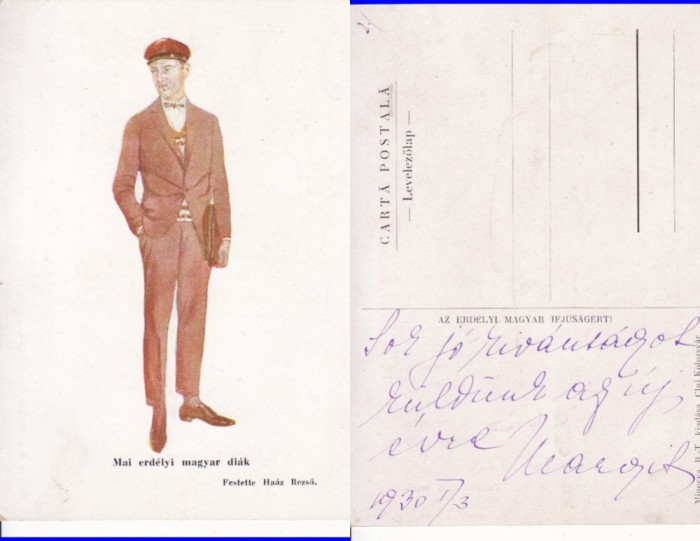 Mai erdélyi magyar diák
Festette Haáz Rezső.
CARTĂ POSTALĂ
— Levelezőlap —
AZ ERDÉLYI MAGYAR IFJUSÁGÉRT!
Sok jó kivánságot
küldünk az új
évre Margit
1930 I/3
Minerva R.-T. kiadása, Cluj-Kolozsvár